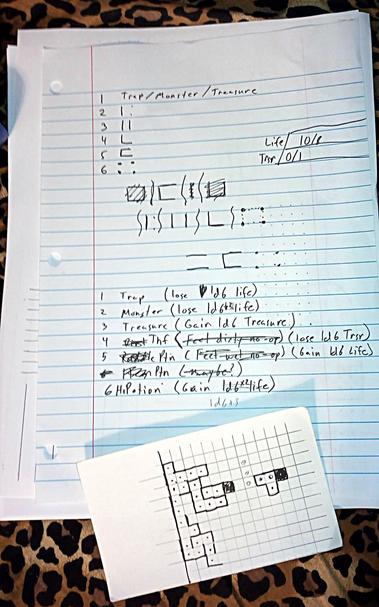 1 Trap/Monster/Treasure
2
3
4
5
6
Life/ 10/8
Trsr/ 0/1
1 Trap (lose 1d6 life)
2 Monster (lose 1d6 life)
3 Treasure (Gain 1d6 Treasure)
4 Thf (Feel dirty no-op) (lose 1d6 Trsr)
5 Ptn (Feel wet no-op) (Gain 1d6 Life)
Ptn (maybe?)
6 HiPotion (Gain 1d6×2 life)
1d6×3